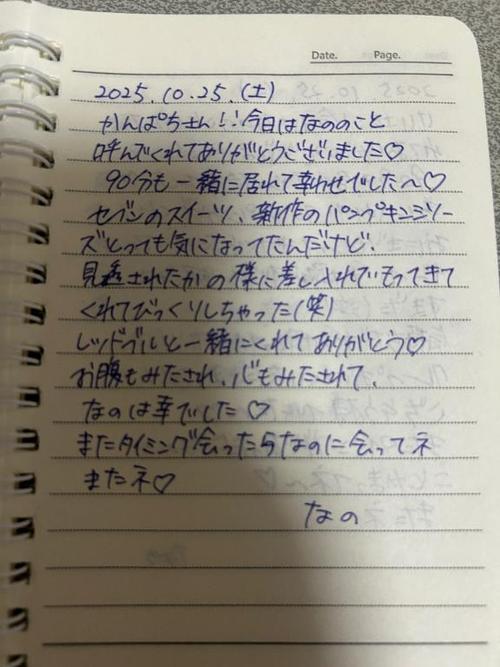 Date. Page.
2025.10.25.(土)
かんぱちさん!!今日はなののこと
呼んでくれてありがとうございました♡
90分も一緒に居れて幸わせでした〜♡
セブンのスイーツ、新作のパンプキンシリー
ズとっても気になってたんだけど、
見透されたかの様に差し入れでもってきて
くれてびっくりしちゃった(笑)
レッドブルと一緒にくれてありがとう♡
お腹もみたされ、心もみたされて、
なのは幸でした♡
またタイミング会ったらなのに会ってネ
またネ♡
なの